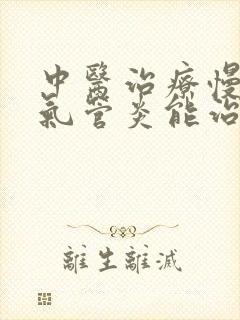 中醫治療慢
氣管炎能治
離生離滅